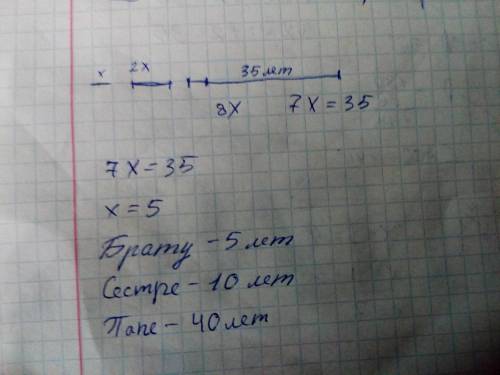 x 2x 35 лет
8x 7x = 35
7x = 35
x = 5
Брату - 5 лет
Сестре - 10 лет
Папе - 40 лет